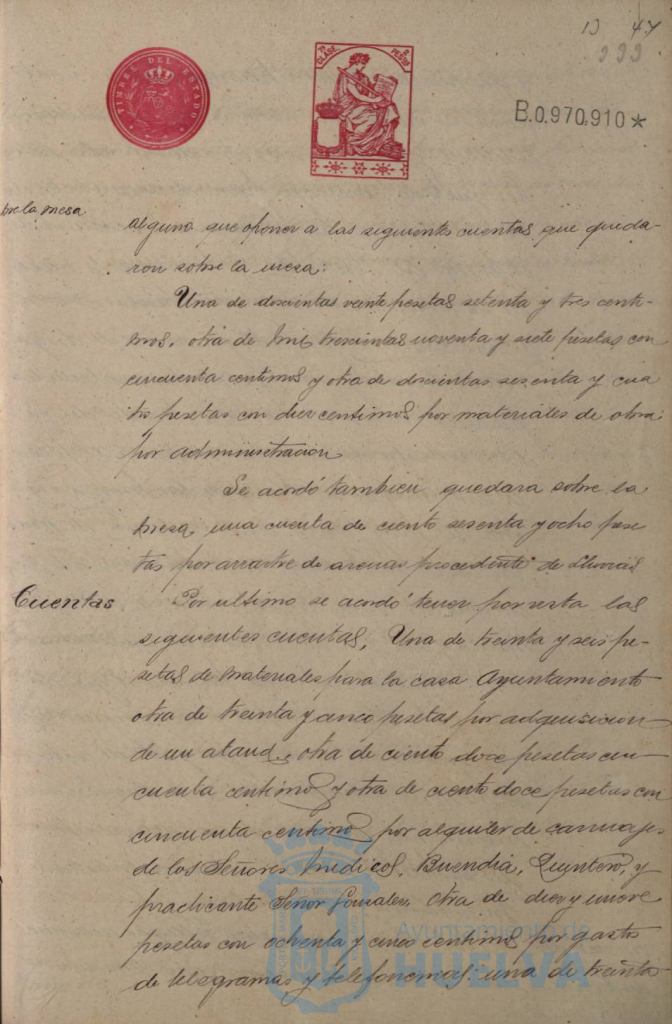 13 47
333
TIMBRE DEL ESTADO
7ª CLASE. 2 PESETAS
B.0,970,910*
bre la mesa
alguno que oponer a las siguientes cuentas que queda-
ron sobre la mesa:
Una de doscientas veinte pesetas setenta y tres centi-
mos, otra de mil trescientas noventa y siete pesetas con
cincuenta centimos y otra de doscientas sesenta y cua
tro pesetas con diez centimos por materiales de obra
por administracion
Se acordó tambien quedara sobre la
mesa una cuenta de ciento sesenta y ocho pese
tas por arrastre de arenas procedente de lluvias
Cuentas
Por ultimo se acordó tener por vista las
siguientes cuentas, Una de treinta y seis pe-
setas de materiales para la casa Ayuntamiento
otra de treinta y cinco pesetas por adquisicion
de un ataud, otra de ciento doce pesetas cin
cuenta centimos y otra de ciento doce pesetas con
cincuenta centimos por alquiler de carruajes
de los Señores Medicos, Buendia, Quintero, y
practicante Señor Gonzalez, otra de diez y nueve
pesetas con ochenta y cinco centimos por gastos
de telegramas y telefonemas una de treinta
Ayuntamiento de
HUELVA